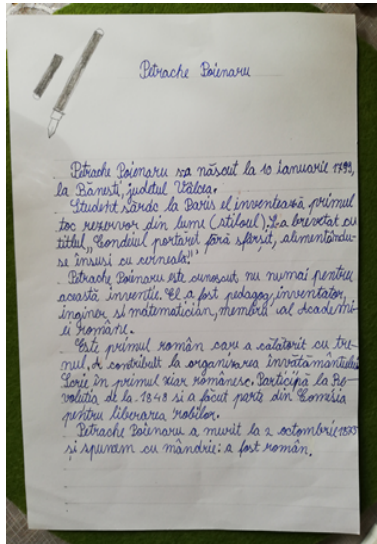 Petrache Poienaru
Petrache Poienaru s-a născut la 10 ianuarie 1799,
la Bănești, județul Vâlcea.
Student sărac la Paris el inventează primul
toc rezervor din lume (stiloul). L-a brevetat cu
titlul „Condeiul portaret fără sfârșit, alimentându-
se însuși cu cerneală"
Petrache Poienaru este cunoscut nu numai pentru
această invenție. El a fost pedagog, inventator,
inginer și matematician, membru al Academi-
ei române.
Este primul român care a călătorit cu tre-
nul. A contribuit la organizarea învățământului
Scrie în primul ziar românesc. Participă la Re-
voluția de la 1848 și a făcut parte din Comisia
pentru liberarea robilor.
Petrache Poienaru a murit la 2 octombrie 1875
și spunem cu mândrie: a fost român.